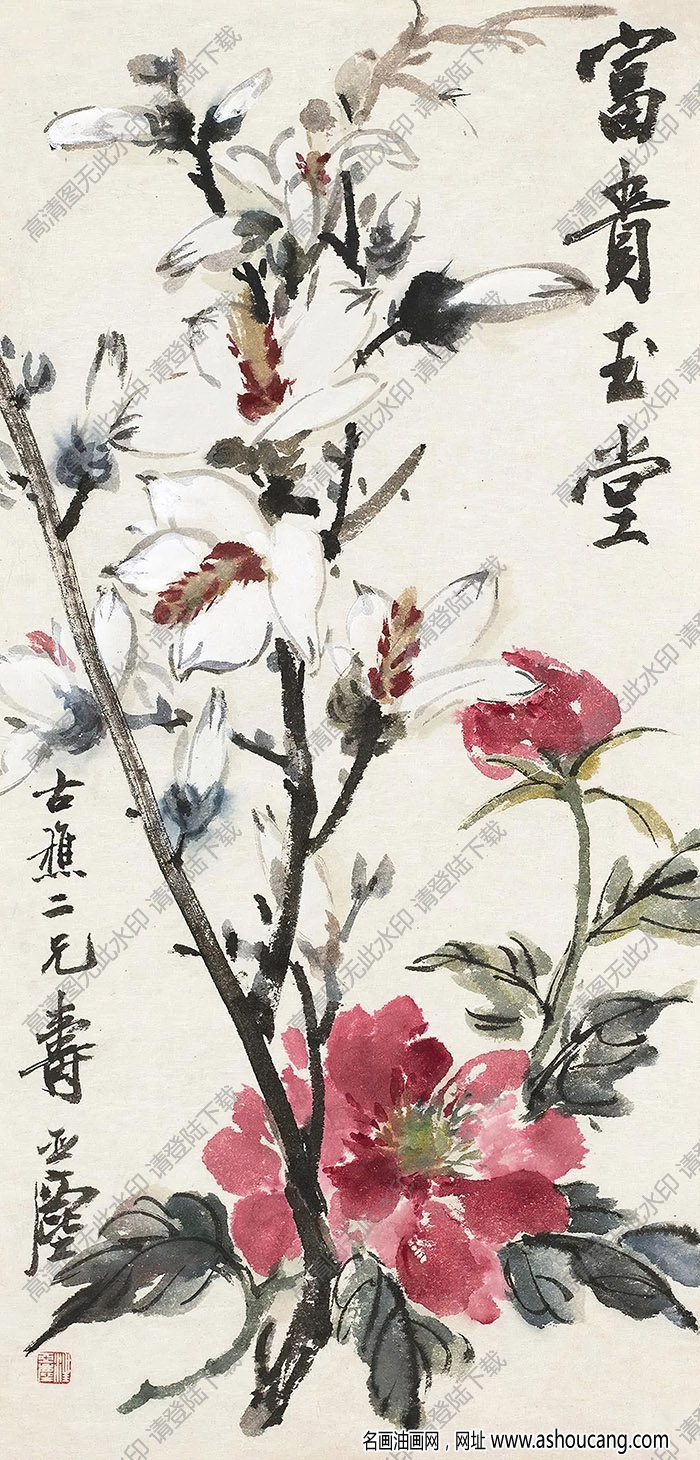 富貴玉堂
古樵二兄壽
亚塵
高清图无此水印·请登陆下载
名画油画网，网址 www.ashoucang.com